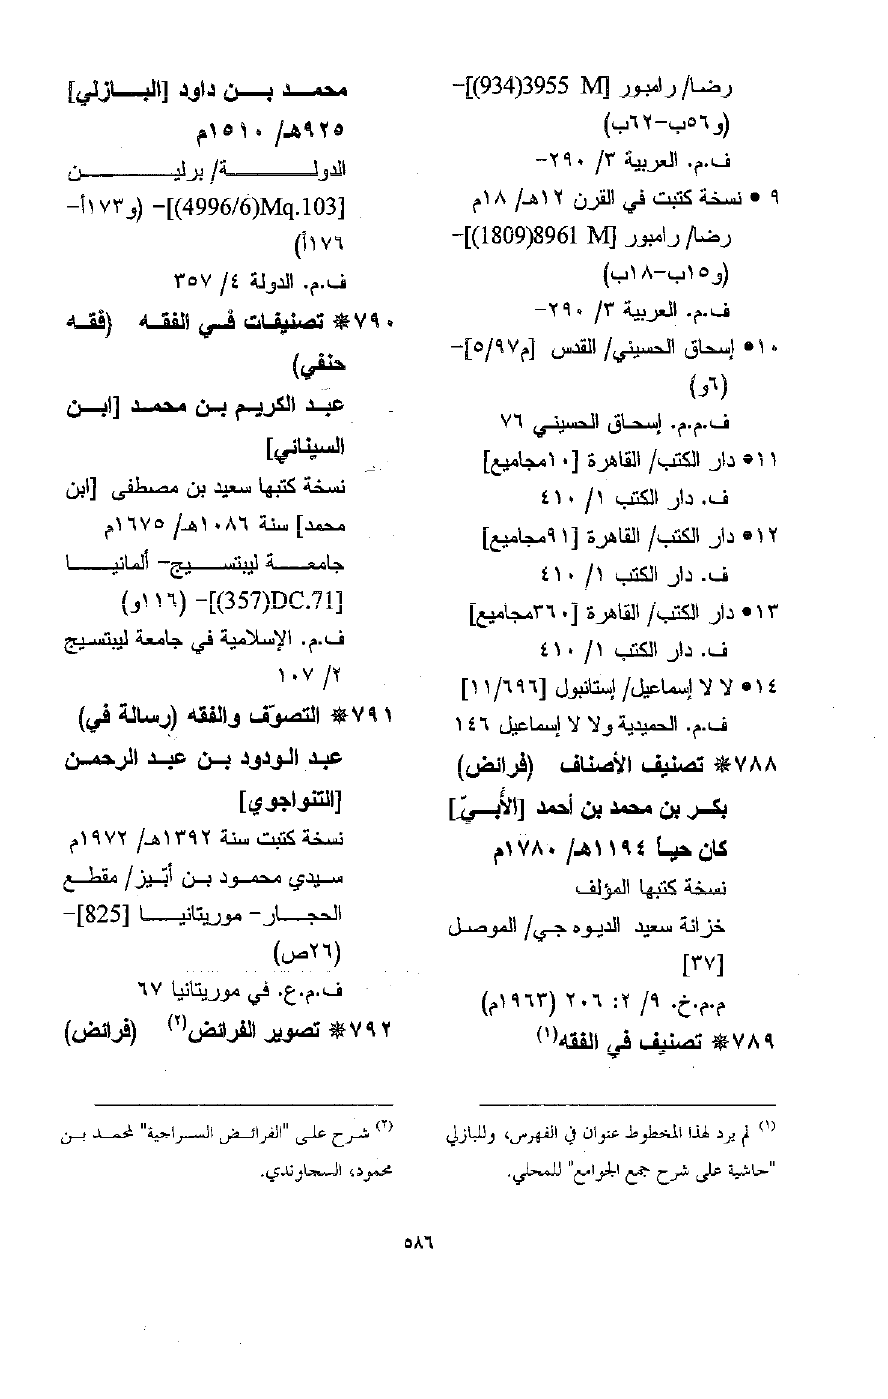 رضا/ رامبور [M 3955(934)]-
(و٥٦ب-٦٢ب)
ف.م. العربية ٣/ ٢٩٠-
٩ • نسخة كتبت في القرن ١٢هـ/ ١٨م
رضا/ رامبور [M 8961(1809)]-
(و١٥ب-١٨ب)
ف.م. العربية ٣/ ٢٩٠-
١٠• إسحاق الحسيني/ القدس [م٥/٩٧]-
(٦و)
ف.م.م. إسحاق الحسيني ٧٦
١١• دار الكتب/ القاهرة [١٠مجاميع]
ف. دار الكتب ١/ ٤١٠
١٢• دار الكتب/ القاهرة [٩١مجاميع]
ف. دار الكتب ١/ ٤١٠
١٣• دار الكتب/ القاهرة [٣٦٠مجاميع]
ف. دار الكتب ١/ ٤١٠
١٤• لا لا إسماعيل/ إستانبول [١١/٦٩٦]
ف.م. الحميدية ولا لا إسماعيل ١٤٦
٧٨٨* تصنيف الأصناف (فرائض)
بكر بن محمد بن أحمد [الأُبيّ]
كان حياً ١١٩٤هـ/ ١٧٨٠م
نسخة كتبها المؤلف
خزانة سعيد الديوه جي/ الموصل
[٣٧]
م.م.خ. ٩/ ٢: ٢٠٦ (١٩٦٣م)
٧٨٩* تصنيف في الفقه(١)
محمد بن داود [البازلي]
٩٢٥هـ/ ١٥١٠م
الدولة/ برلين
[Mq.103(4996/6)]- (و١٧٣أ-
١٧٦أ)
ف.م. الدولة ٤/ ٣٥٧
٧٩٠* تصنيفات في الفقه (فقه
حنفي)
عبد الكريم بن محمد [ابن
السيناني]
نسخة كتبها سعيد بن مصطفى [ابن
محمد] سنة ١٠٨٦هـ/ ١٦٧٥م
جامعة ليبتسيج- ألمانيا
[DC.71(357)]- (١١٦و)
ف.م. الإسلامية في جامعة ليبتسيج
٢/ ١٠٧
٧٩١* التصوّف والفقه (رسالة في)
عبد الودود بن عبد الرحمن
[التنواجوي]
نسخة كتبت سنة ١٣٩٢هـ/ ١٩٧٢م
سيدي محمود بن أبَتيز/ مقطع
الحجار- موريتانيا [825]-
(٢٦ص)
ف.م.ع. في موريتانيا ٦٧
٧٩٢* تصوير الفرائض(٢) (فرائض)
(١) لم يرد لهذا المخطوط عنوان في الفهرس، وللبازلي
"حاشية على شرح جمع الجوامع" للمحلي.
(٢) شرح على "الفرائض السراجية" لمحمد بن
محمود، السجاوندي.
٥٨٦